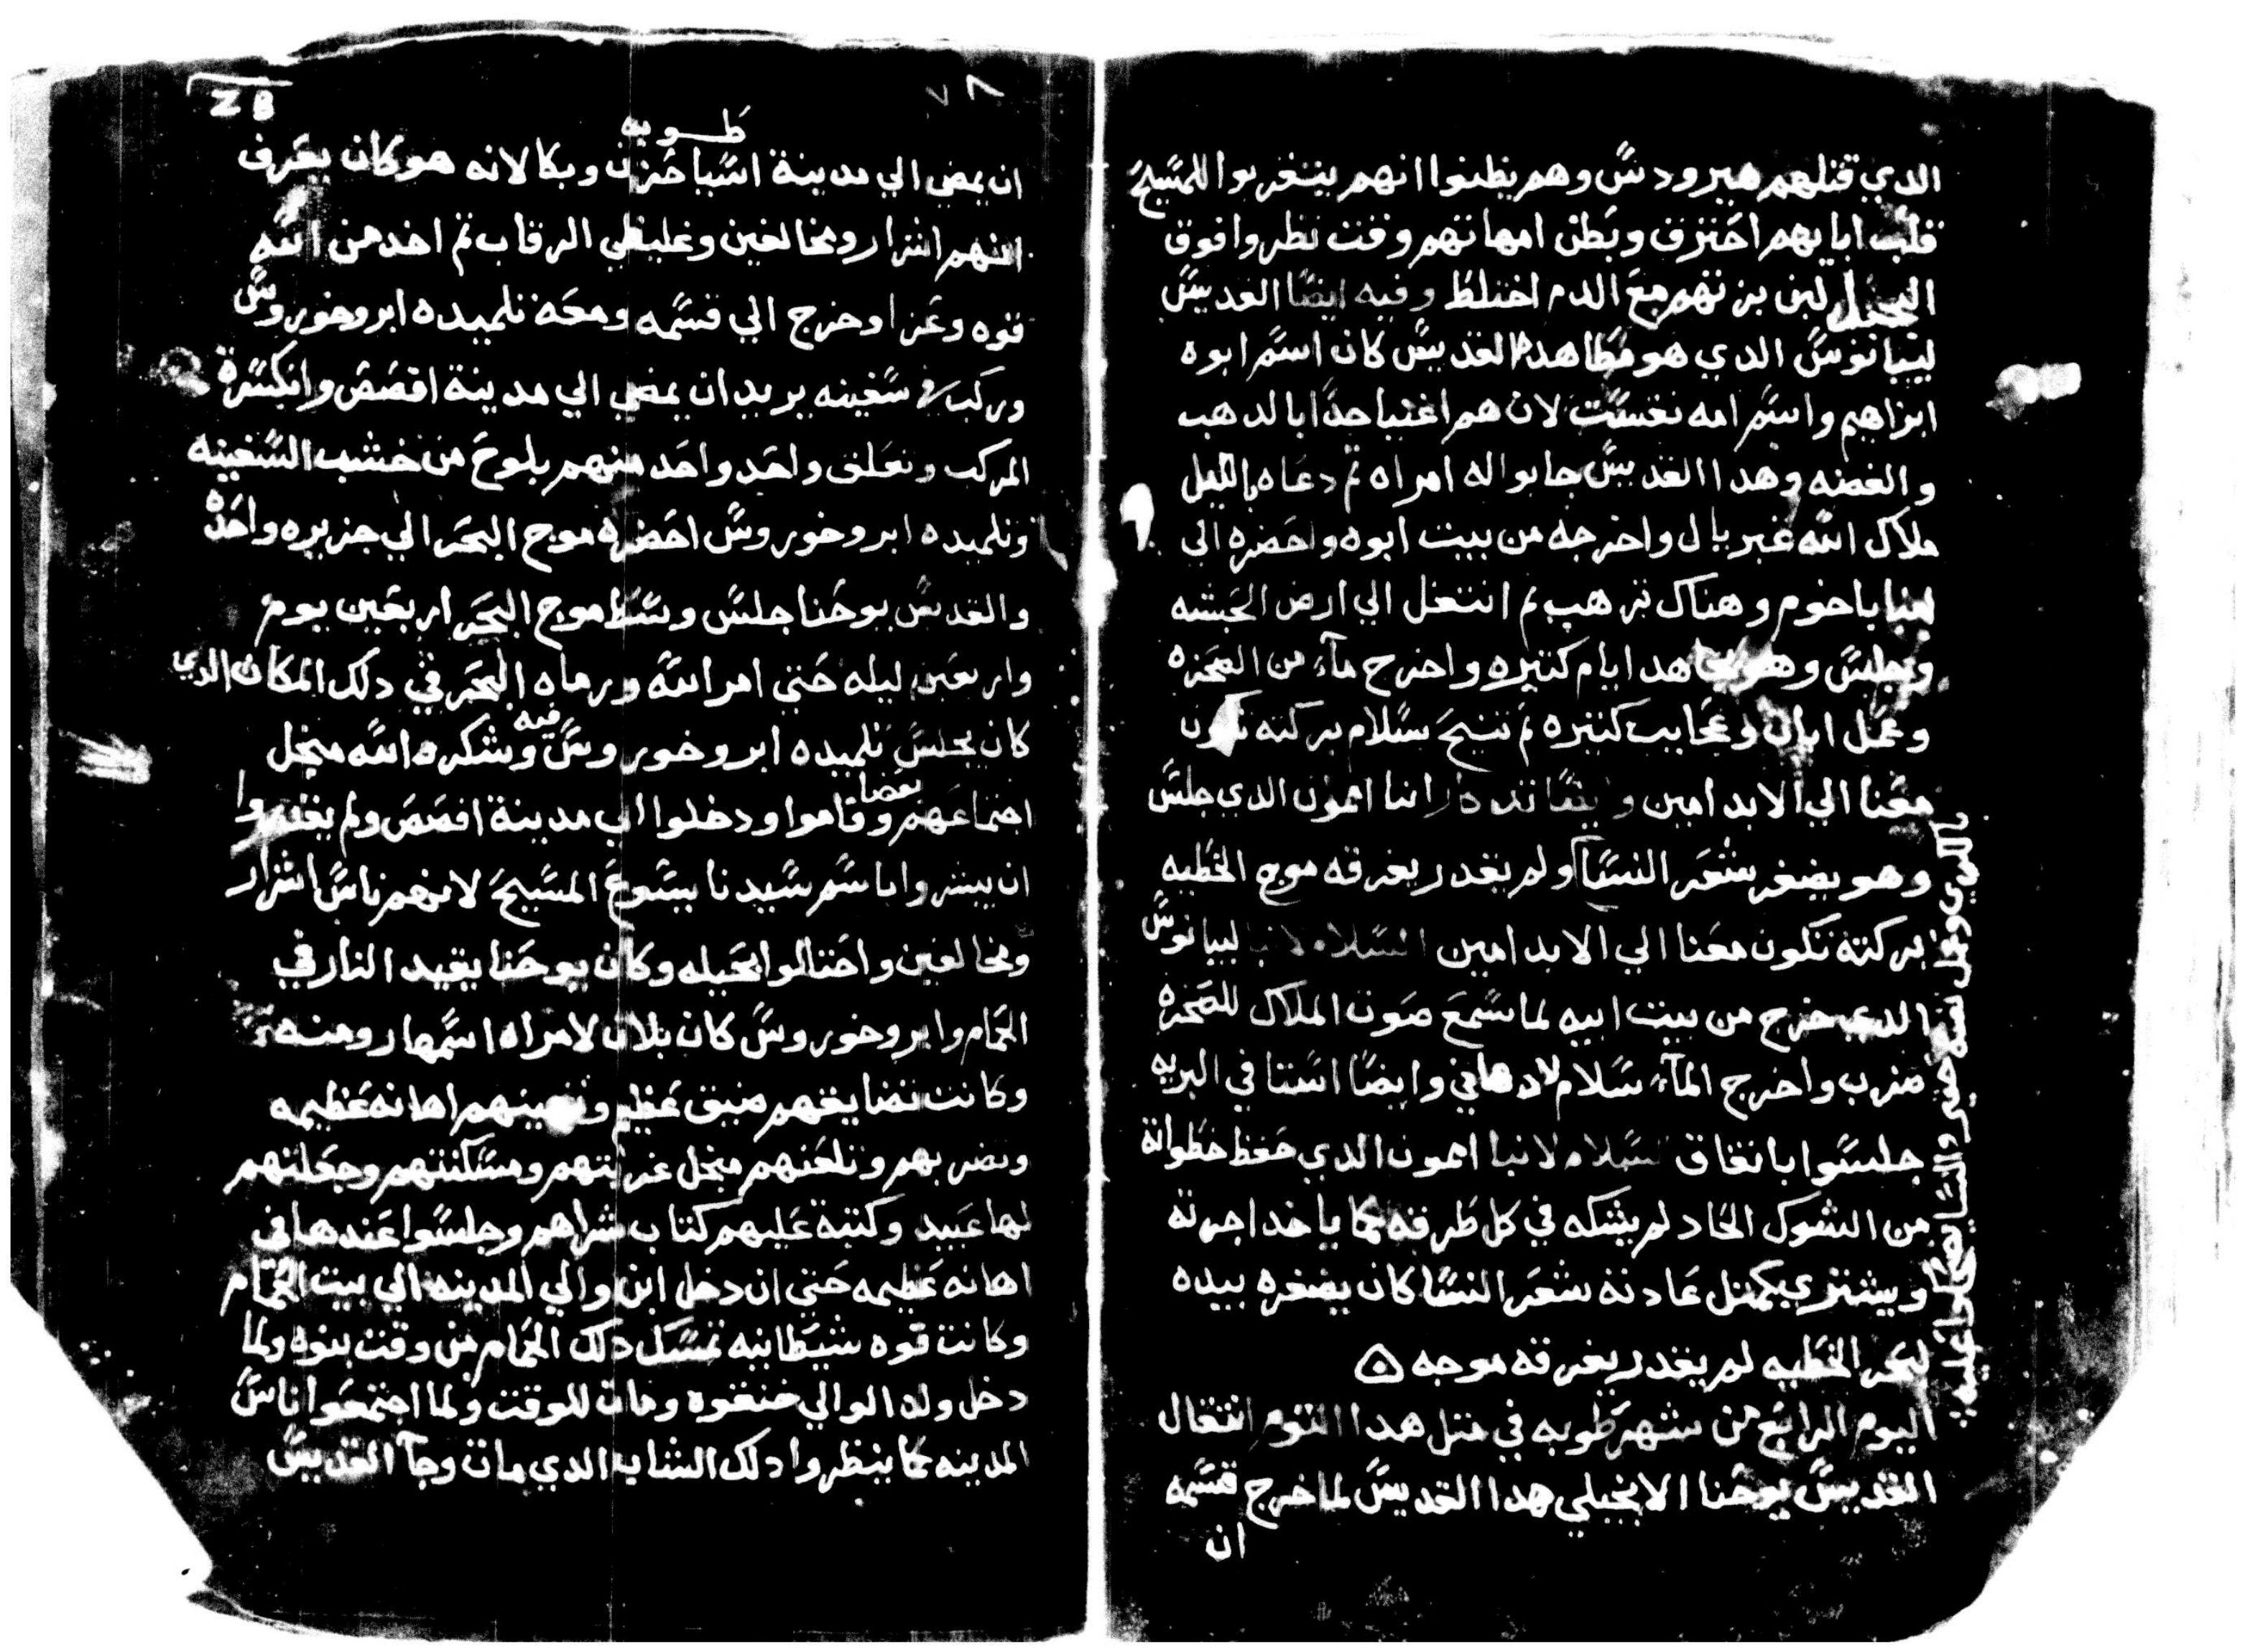 الدي قتلهم هيرودس وهم يظنوا انهم يتغربوا للمسيح
قلب ابايهم احترق وبطن امهاتهم وقت نظروا فوق
لبن بزتهم مع الدم اختلط وفيه ايضا القديس
ليبانوس الدي هو مطا هدا القديس كان اسم ابوه
ابراهيم واسم امه نغست لان هم اغنيا جدا بالدهب
والفضه وهدا القديس جابوا له امراه تم دعاه بالليل
ملاك الله غبريال واخرجه من بيت ابوه واحضره الي
لعنبا باخوم وهناك ترهب تم انتقل الي ارض الحبشه
وجلس وهو يجاهد ايام كتيره واخرج مآء من الصخره
وعمل ايات وعجايب كتيره تم تنيح بسلام بركته تكون
معنا الي الابد امين وايضا تدكار انبا امون الدي جلس
وهو يضفر شعر النسا ولم يقدر يغرقه موج الخطيه
بركته تكون معنا الي الابد امين السلام لانبا ليبانوس
الدي خرج من بيت ابيه لما سمع صوت الملاك للصخره
ضرب واخرج المآء سلام لادهاني وايضا اسنتا في البريه
جلسوا باتفاق السلام لانبا امون الدي حفظ خطواته
من الشوك الحاد لم يشكه في كل طرقه كما ياخد اجرته
ويشتري كمتل عادته شعر النسا كان يضفره بيده
لبحر الخطيه لم يقدر يغرقه موجه
اليوم الرابع من شهر طوبه في متل هدا اليوم انتقال
القديس يوحنا الانجيلي هدا القديس لما خرج قسمه
ان
ZB
٧٨
طوبه
ان يمضي الي مدينة اسيا حزن وبكا لانه هو كان يعرف
انهم اشرار ومخالفين وغليظي الرقاب تم اخد من الله
قوه وعزا وخرج الي قسمه ومعه تلميده ابروخوروس
وركب في سفينه يريد ان يمضي الي مدينة افصص وانكسرة
المركب وتعلق واحد واحد منهم بلوح من خشب السفينه
وتلميده ابروخوروس احضره موج البحر الي جزيره واحده
والقديس يوحنا جلس وسط موج البحر اربعين يوم
واربعين ليله حتي امر الله ورماه البحر في دلك المكان الدي
كان يجلس تلميده ابروخوروس فيه وشكره الله مبخل
اجتماعهم بعضا وقاموا ودخلوا الي مدينة افصص ولم يقدروا
ان يبشروا باسم سيدنا يسوع المسيح لانهم ناس اشرار
ومخالفين واحتالوا بحيله وكان يوحنا يقيد النار في
الحمام وابروخوروس كان بلان لامراه اسمها رومنه
وكانت تضايقهم ضيق عظيم وتهينهم اهانه عظيمه
وتضربهم وتلعنهم مبخل غربتهم ومسكنتهم وجعلتهم
لها عبيد وكتبة عليهم كتاب شراهم وجلسوا عندها في
اهانه عظيمه حتي ان دخل ابن والي المدينه الي بيت الحمام
وكانت قوه شيطانيه تمسك دلك الحمام من وقت بنوه ولما
دخل ولد الوالي خنقوه ومات للوقت ولما اجتمعوا ناس
المدينه كما ينظروا دلك الشاب الدي مات وجآ القديس